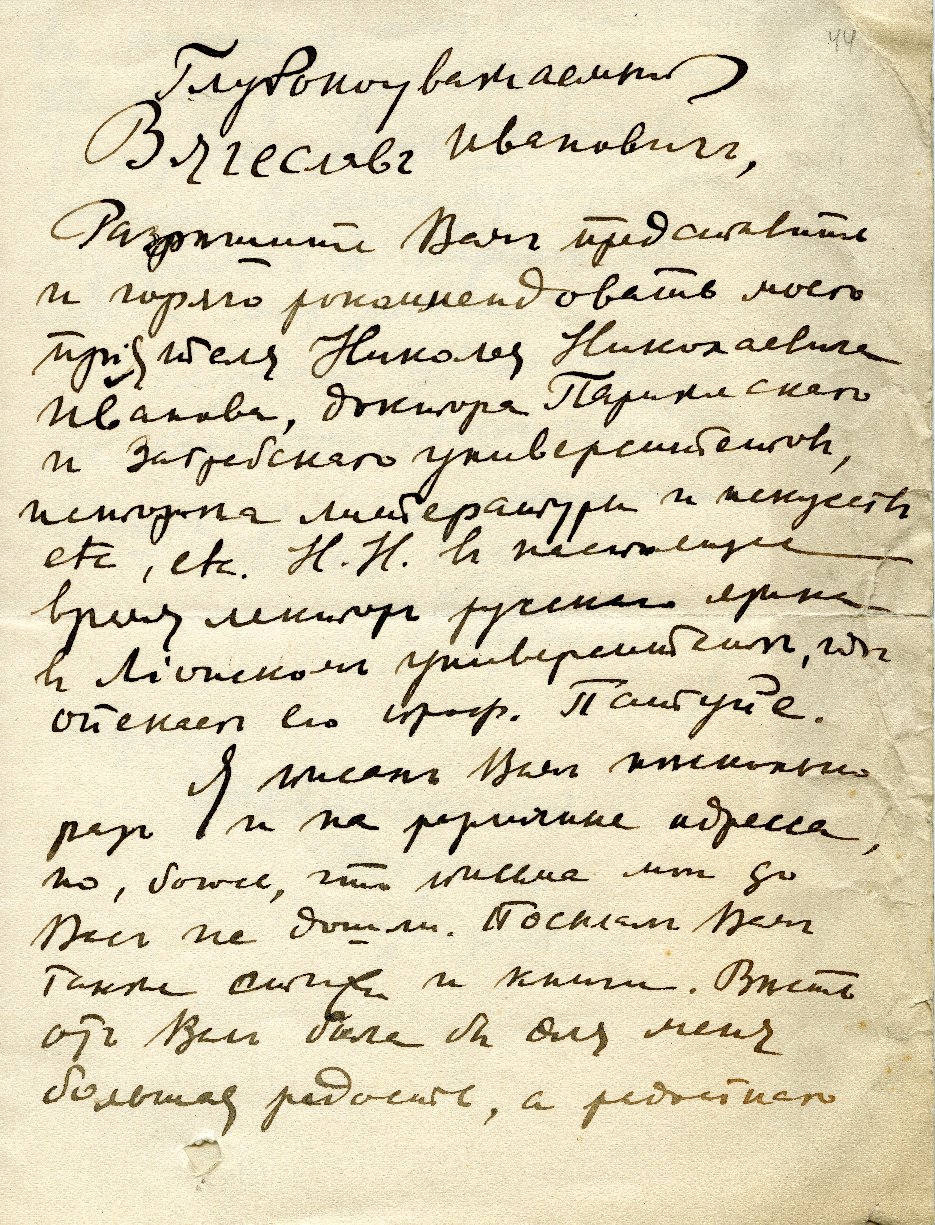 44
Глубокоуважаемый
Вячеславъ Ивановичъ,
Разрѣшите Вамъ представить
и горячо рекоммендовать моего
пріятеля Николая Николаевича
Иванова, доктора Парижскаго
и Загребскаго университетовъ,
историка литературы и искусствъ
etc, etc. Н.Н. въ настоящее
время лекторъ русскаго языка
въ Ліонскомъ университетѣ, гдѣ
опекаетъ его проф. Патуйе.
Я писалъ Вамъ нѣсколько
разъ и на различные адресса,
но, боюсь, что письма мои до
Васъ не дошли. Посылалъ Вамъ
также стихи и книги. Вѣсть
отъ Васъ была бы для меня
большая радость, а радостнаго